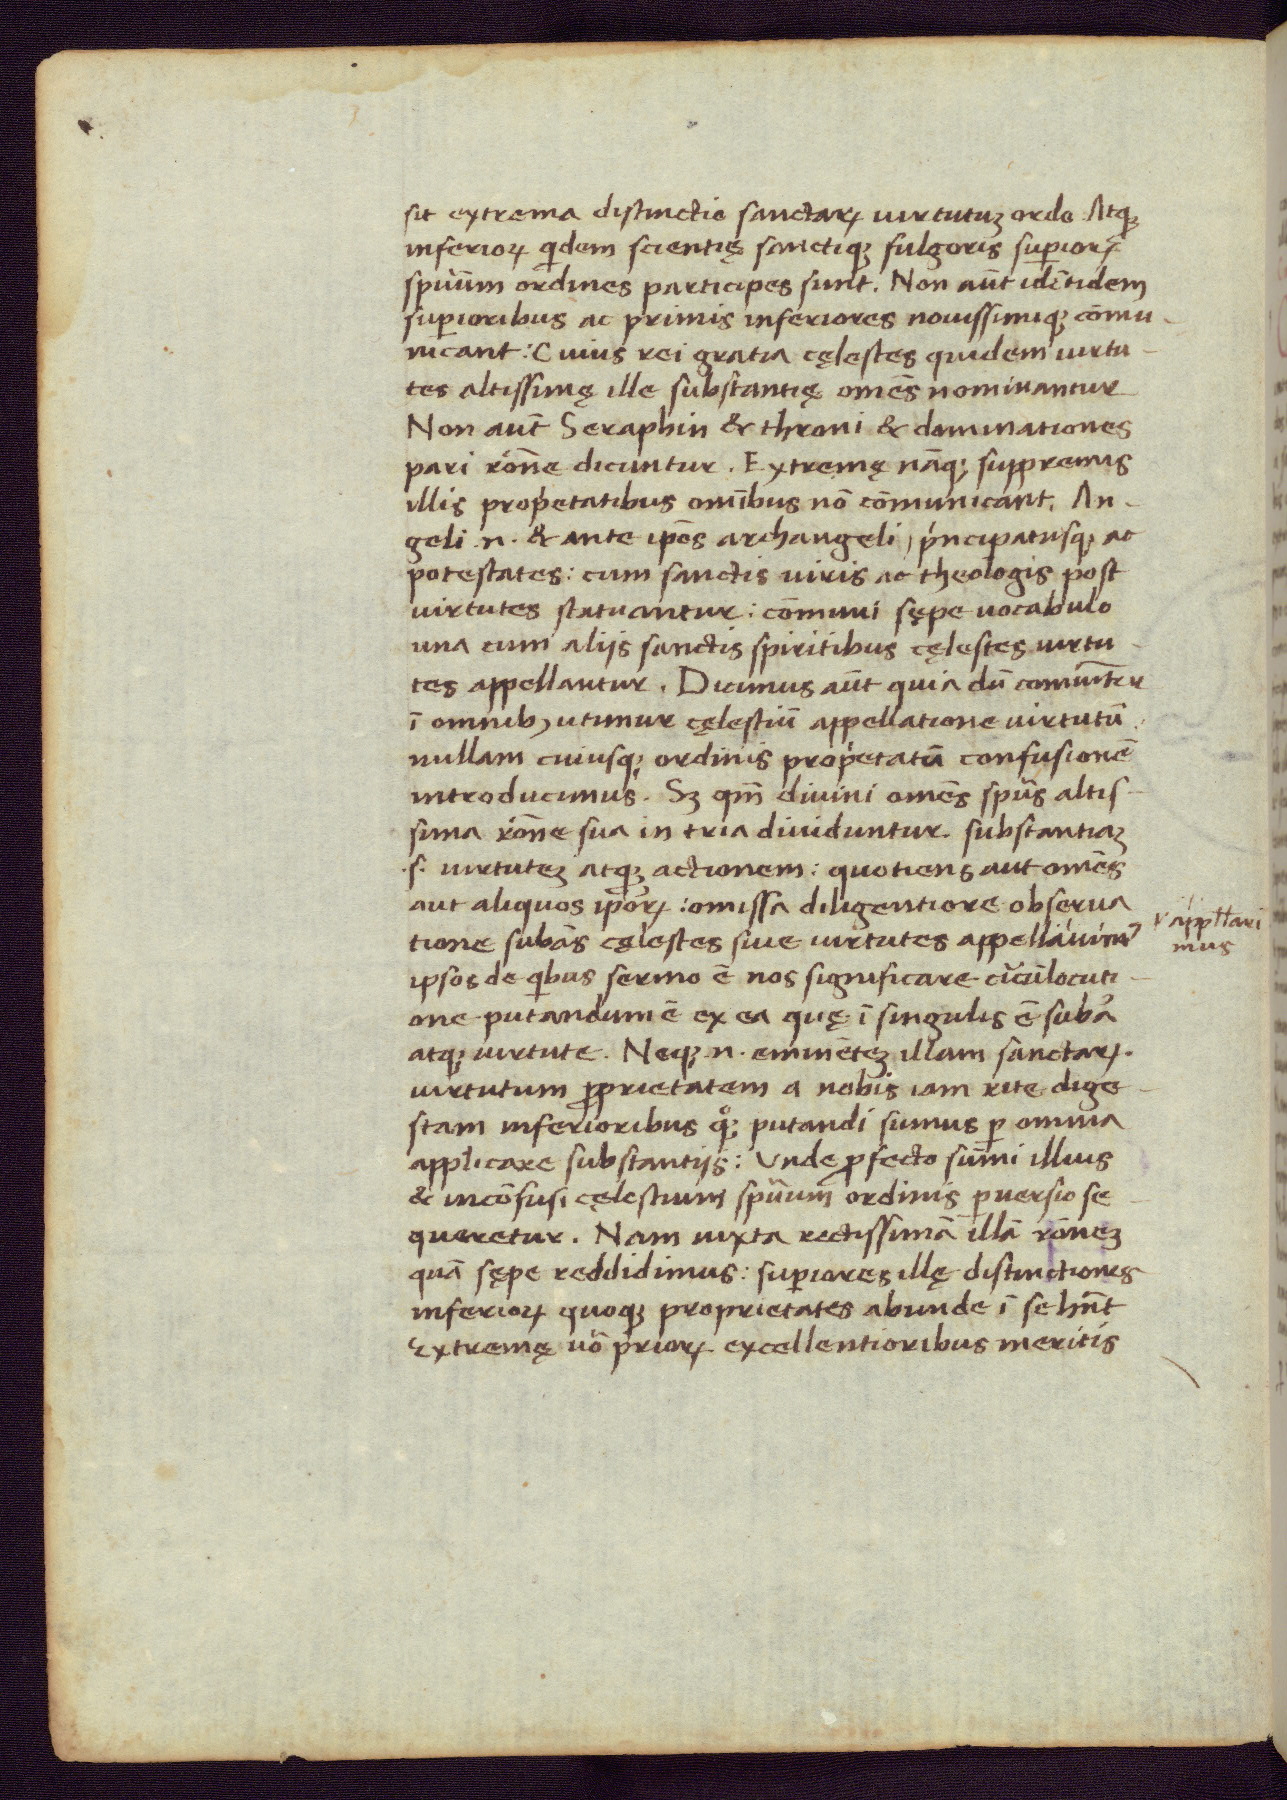 sit extrema distinctio sanctaꝝ uirtutuꝫ ordo Atqꝫ
inferioꝝ qͥdem scientię sanctiqꝫ fulgoris suꝑioꝝ
spũũm ordines participes sunt. Non aũt idẽtidem
suꝑioribus ac primis inferiores nouissimiqꝫ cõmu-
nicant: Cuius rei gratia cęlestes quidem uirtu-
tes altissimę ille substantię omẽs nominantur
Non aũt Seraphin & throni & dominationes
pari rõne dicuntur. Extremę nãqꝫ suppremis
illis propͥetatibus omĩbus nõ cõmunicant. An-
geli .n. & ante ipõs archangeli, pͥncipatusqꝫ ac
potestates: cum sanctis uiris ac theologis post
uirtutes statuantur: cõmuni sępe uocabulo
una cum aliis sanctis spiritibus cęlestes uirtu-
tes appellantur. Dicimus aũt quia dũ comuniter
ĩ omnibꝫ utimur cęlestiũ appellatione uirtutũ:
nullam cuiusqꝫ ordinis propͥetatũ confusionẽ
introducimus. Sꝫ qm̃ diuini omẽs spũs altis-
sima rõne sua in tria diuiduntur. substantiaꝫ
.s. uirtuteꝫ atqꝫ actionem: quotiens aut omẽs
aut aliquos ipõꝝ: omissa diligentiore obserua
tione subãs cęlestes siue uirtutes appellauimꝰ
ipsos de qͥbus sermo ẽ nos significare cͥcũlocuti-
one putandum ẽ ex ea quę ĩ singulis ẽ subã
atqꝫ uirtute. Neqꝫ .n. eminẽteꝫ illam sanctaꝝ.
uirtutum ꝓprietatem a nobis iam rite dige-
stam inferioribus qͦqꝫ putandi sumus ꝑ omnia
applicare substantiis: Unde ꝓfecto sum̃i illius
& incõfusi cęlestium spũum ordinis ꝑuersio se-
queretur. Nam iuxta rectissimã illã rõneꝫ
quã sępe reddidimus: suꝑiores illę distinctiones
inferioꝝ quoqꝫ proprietates abunde ĩ se hñt
Extremę uõ prioꝝ excellentioribus meritis
appellari
mus